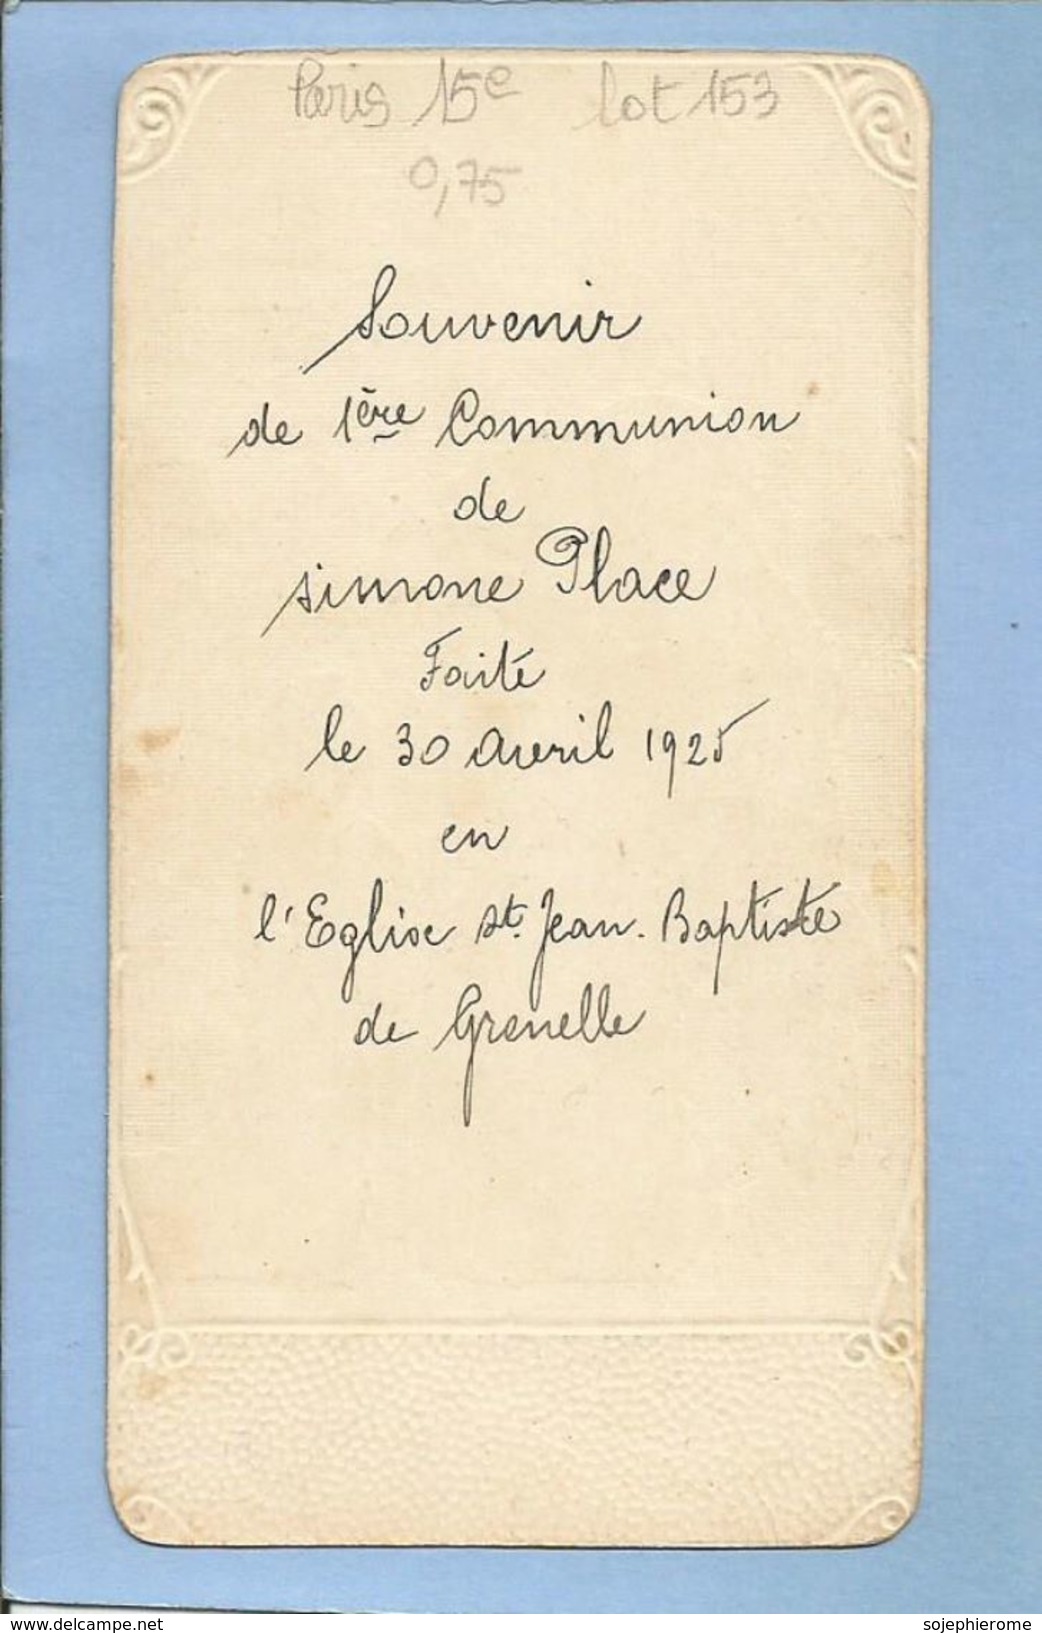 Paris 15e lot 153
0,75
Souvenir
de 1ère Communion
de
Simone Place
Faite
le 30 Avril 1925
en
l'Eglise St. Jean. Baptiste
de Grenelle
www.delcampe.net
sojephierome